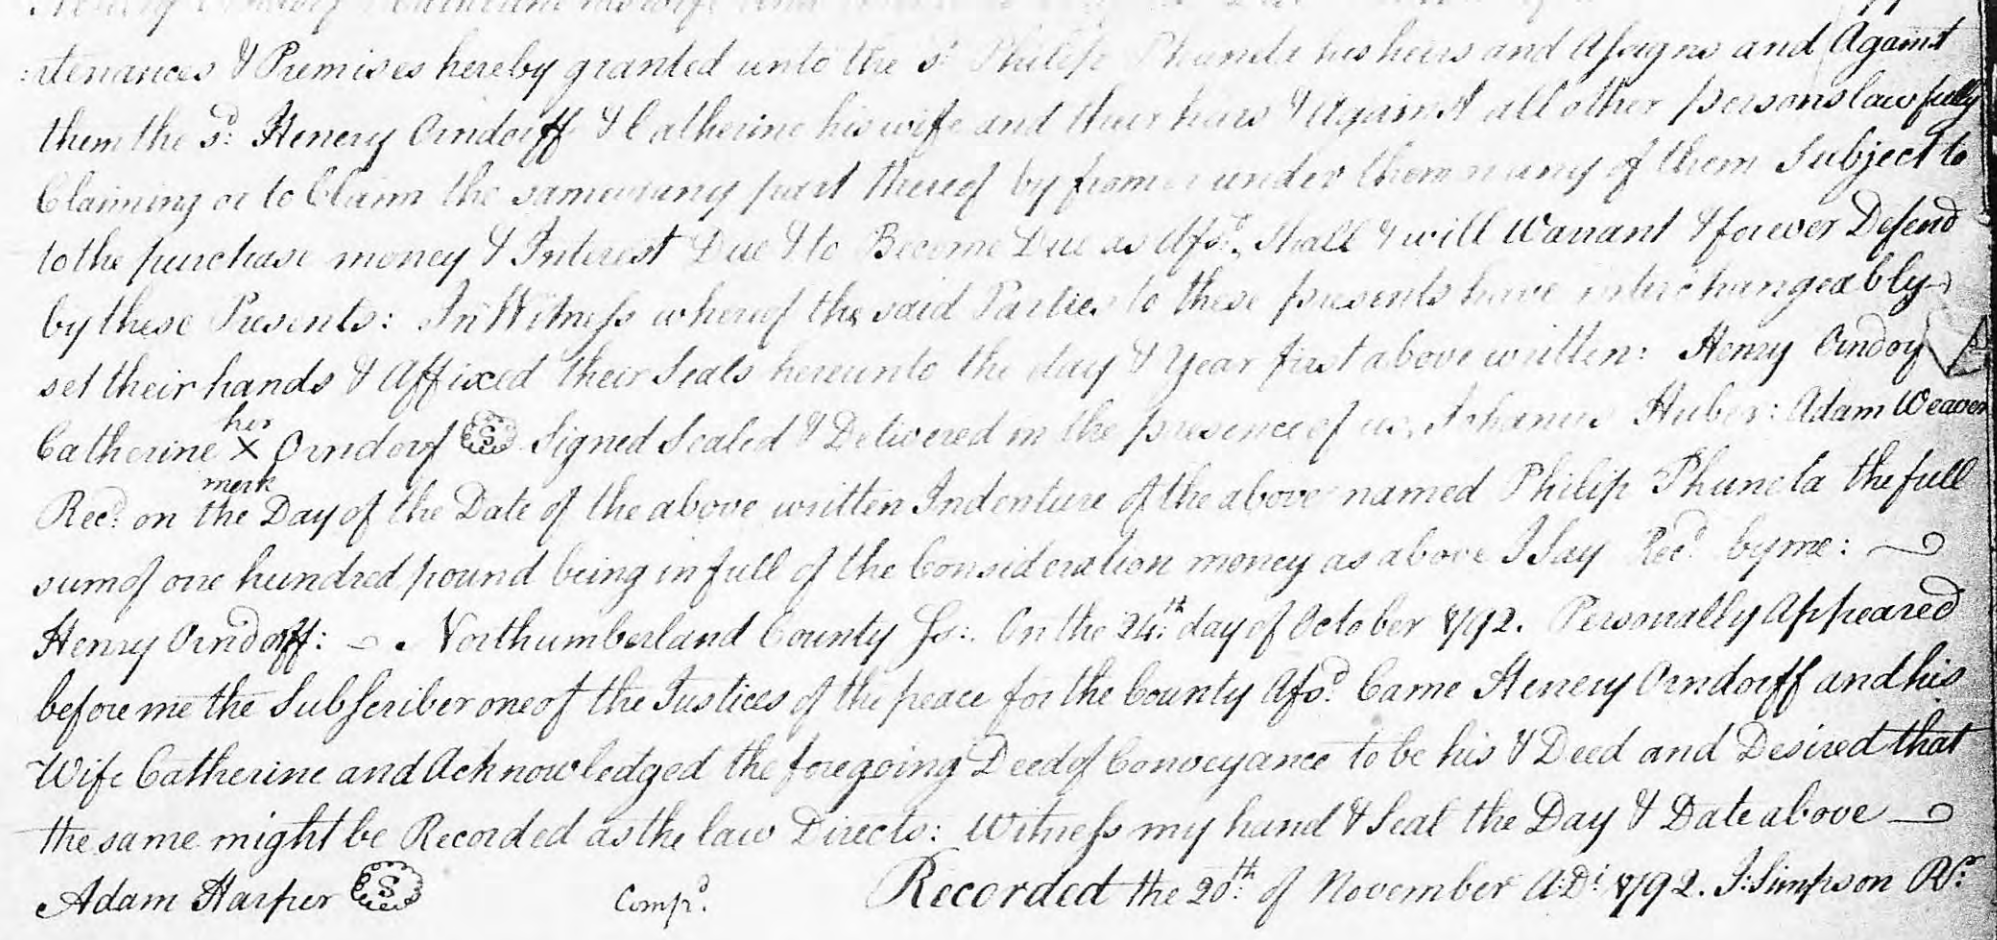 -rtenances & Premises hereby granted unto the sd. Philip his heirs and Assigns and Against
them the sd. Henery Orndorff & Catherine his wife and their heirs & Against all other persons lawfully
Claiming or to Claim the same or any part thereof by from or under them or any of them Subject to
to the purchase money & Interest Due & to Become Due as Afsd. Shall & will Warrant & forever Defend
by these Presents: In Witness whereof the said Parties to these presents have interchangeably
set their hands & Affixed their Seals hereunto the day & Year first above written: Henry Orndorf
Catherine her X mark Orndorf S Signed Sealed & Delivered in the presence of us, Johannes Huber: Adam Weaver
Recd. on the Day of the Date of the above written Indenture of the above named Philip Phuncta the full
sum of one hundred pound being in full of the Consideration money as above I Say Recd. by me:
Henry Orndorff: Northumberland County Ss: On the 24th. day of October 1792. Personally Appeared
before me the Subscriber one of the Justices of the peace for the County Afsd. Came Henery Orndorff and his
Wife Catherine and Acknowledged the foregoing Deed of Conveyance to be his & Deed and Desired that
the same might be Recorded as the law Directs: Witness my hand & Seal the Day & Date above
Adam Harper S Compd. Recorded the 20th. of November A:D: 1792. J: Simpson Rr.